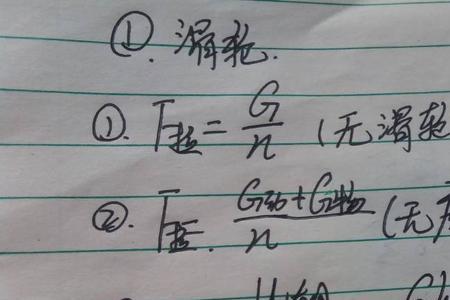 ①. 滑轮.
①. F拉=G/n (无滑轮
②. F拉. G动+G物/n (无